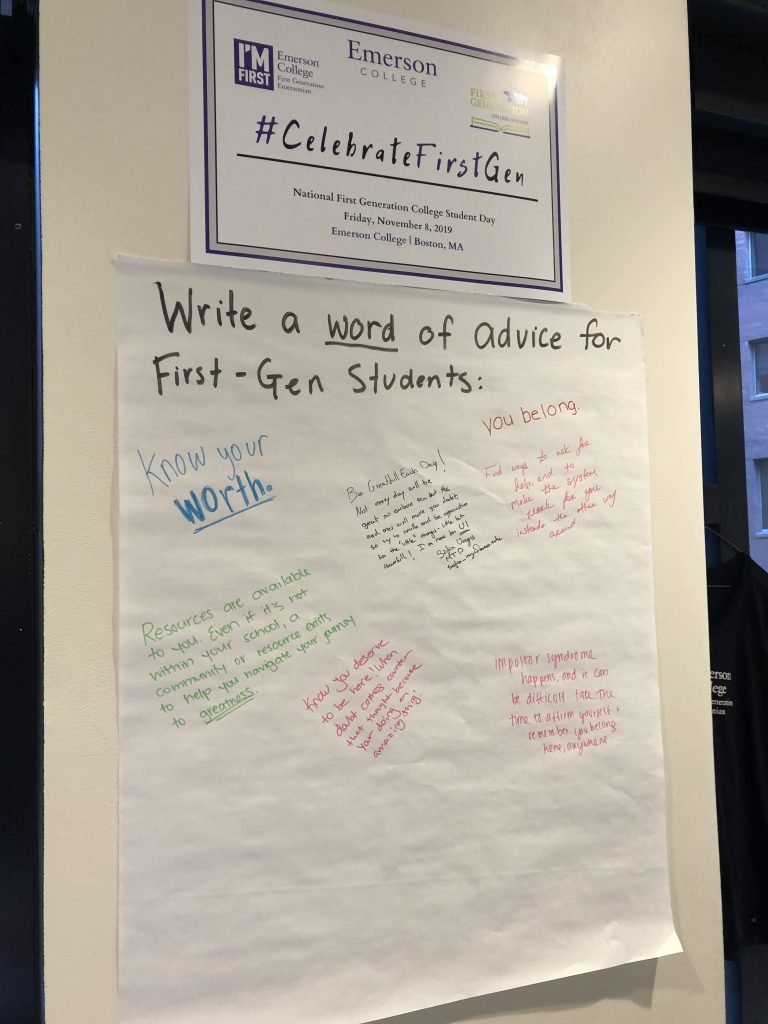 I'M
FIRST
Emerson
College
First Generation
Emersonian
Emerson
COLLEGE
FIRST
GENERATION
COLLEGE STUDENT
#CelebrateFirstGen
National First Generation College Student Day
Friday, November 8, 2019
Emerson College | Boston, MA
Write a word of advice for
First-Gen Students:
Know your
worth.
Be Greatfull Each Day!
Not every day will be
great so embrace them but the
bad ones will make you doubt,
so try to smile and be appreciative
for the "little" things - little but
Powerfull! I'm here for U!
you belong.
Find ways to ask for
help, and to
make the system
work for you
instead the other way
around
Resources are available
to you. Even if it's not
within your school, a
community or resource exists
to help you navigate your journey
to greatness.
Know you deserve
to be here! When
doubt comes counter
that thought because
your doing an
amazing thing!
Impostor syndrome
happens, and it can
be difficult. take the
time to affirm yourself &
remember you belong
here, anywhere.
erson
ege